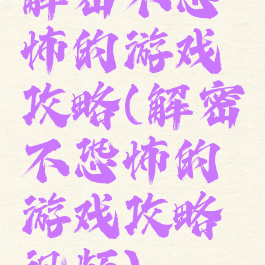 解密不恐
怖的游戏
攻略(解密
不恐怖的
游戏攻略
视频)